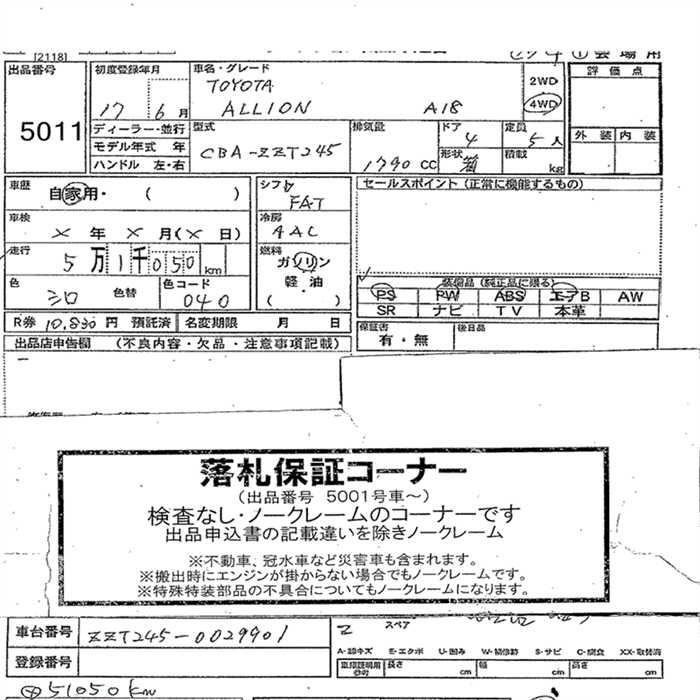 [2118]
① 会場用
出品番号 5011
初度登録年月 17 6月
車名・グレード TOYOTA ALLION A18
2WD 4WD
評価点
外装 内装
ディーラー・並行
モデル年式 年
ハンドル 左・右
型式 CBA-ZZT245
排気量 1790 CC
ドア 4
形状 箱
定員 5人
積載 kg
車歴 自家用・( )
シフト FAT
車検 × 年 × 月(× 日)
冷房 AAC
走行 5万1千050km
燃料 ガソリン 軽・油 ( )
色 シロ 色替
色コード 040
セールスポイント(正常に機能するもの)
装備品(純正品に限る)
PS PW ABS エアB AW
SR ナビ TV 本革
R券 10,830円 預託済 名変期限 月 日
保証書 有・無
後日品
出品店申告欄 (不良内容・欠品・注意事項記載)
落札保証コーナー
(出品番号 5001号車~)
検査なし・ノークレームのコーナーです
出品申込書の記載違いを除きノークレーム
※不動車、冠水車など災害車も含まれます。
※搬出時にエンジンが掛からない場合でもノークレームです。
※特殊特装部品の不具合についてもノークレームになります。
車台番号 ZZT245-0029901
スペア
登録番号
A-線キズ E-エクボ U-凹み W-補修跡 S-サビ C-腐食 XX-取替済
車庫証明用参考 長さ cm 幅 cm 高さ cm
51050km